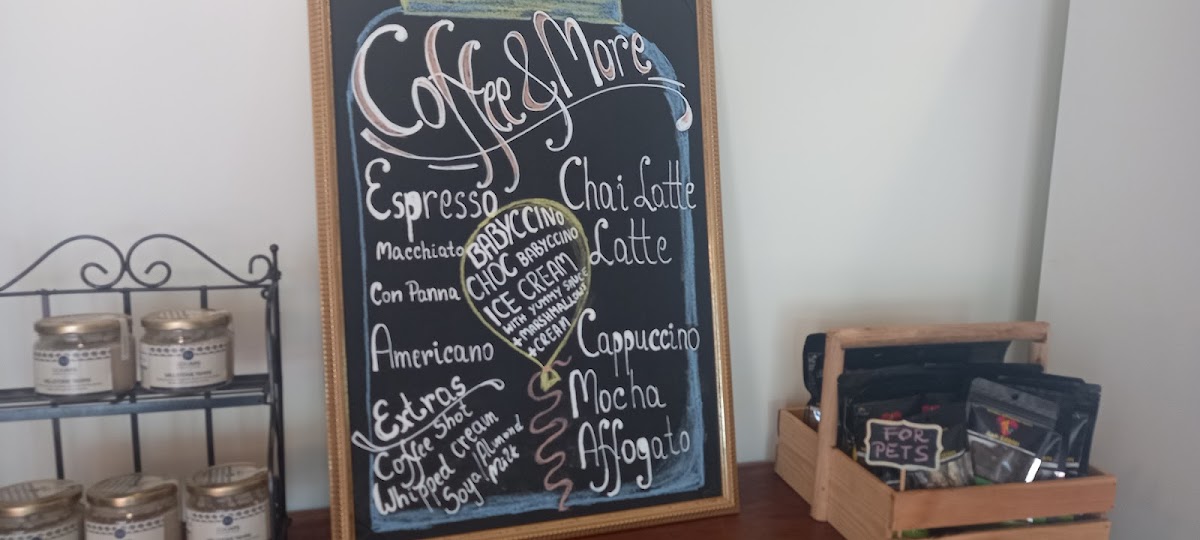 Coffee & More
Espresso
Macchiato
Con Panna
Americano
Extras
Coffee Shot
Whipped Cream
Soya/Almond
Milk
BABYCCINO
CHOC BABYCCINO
ICE CREAM
WITH YUMMY SAUCE
+MARSHMALLOWS
+CREAM
Chai Latte
Latte
Cappuccino
Mocha
Affogato
FOR
PETS